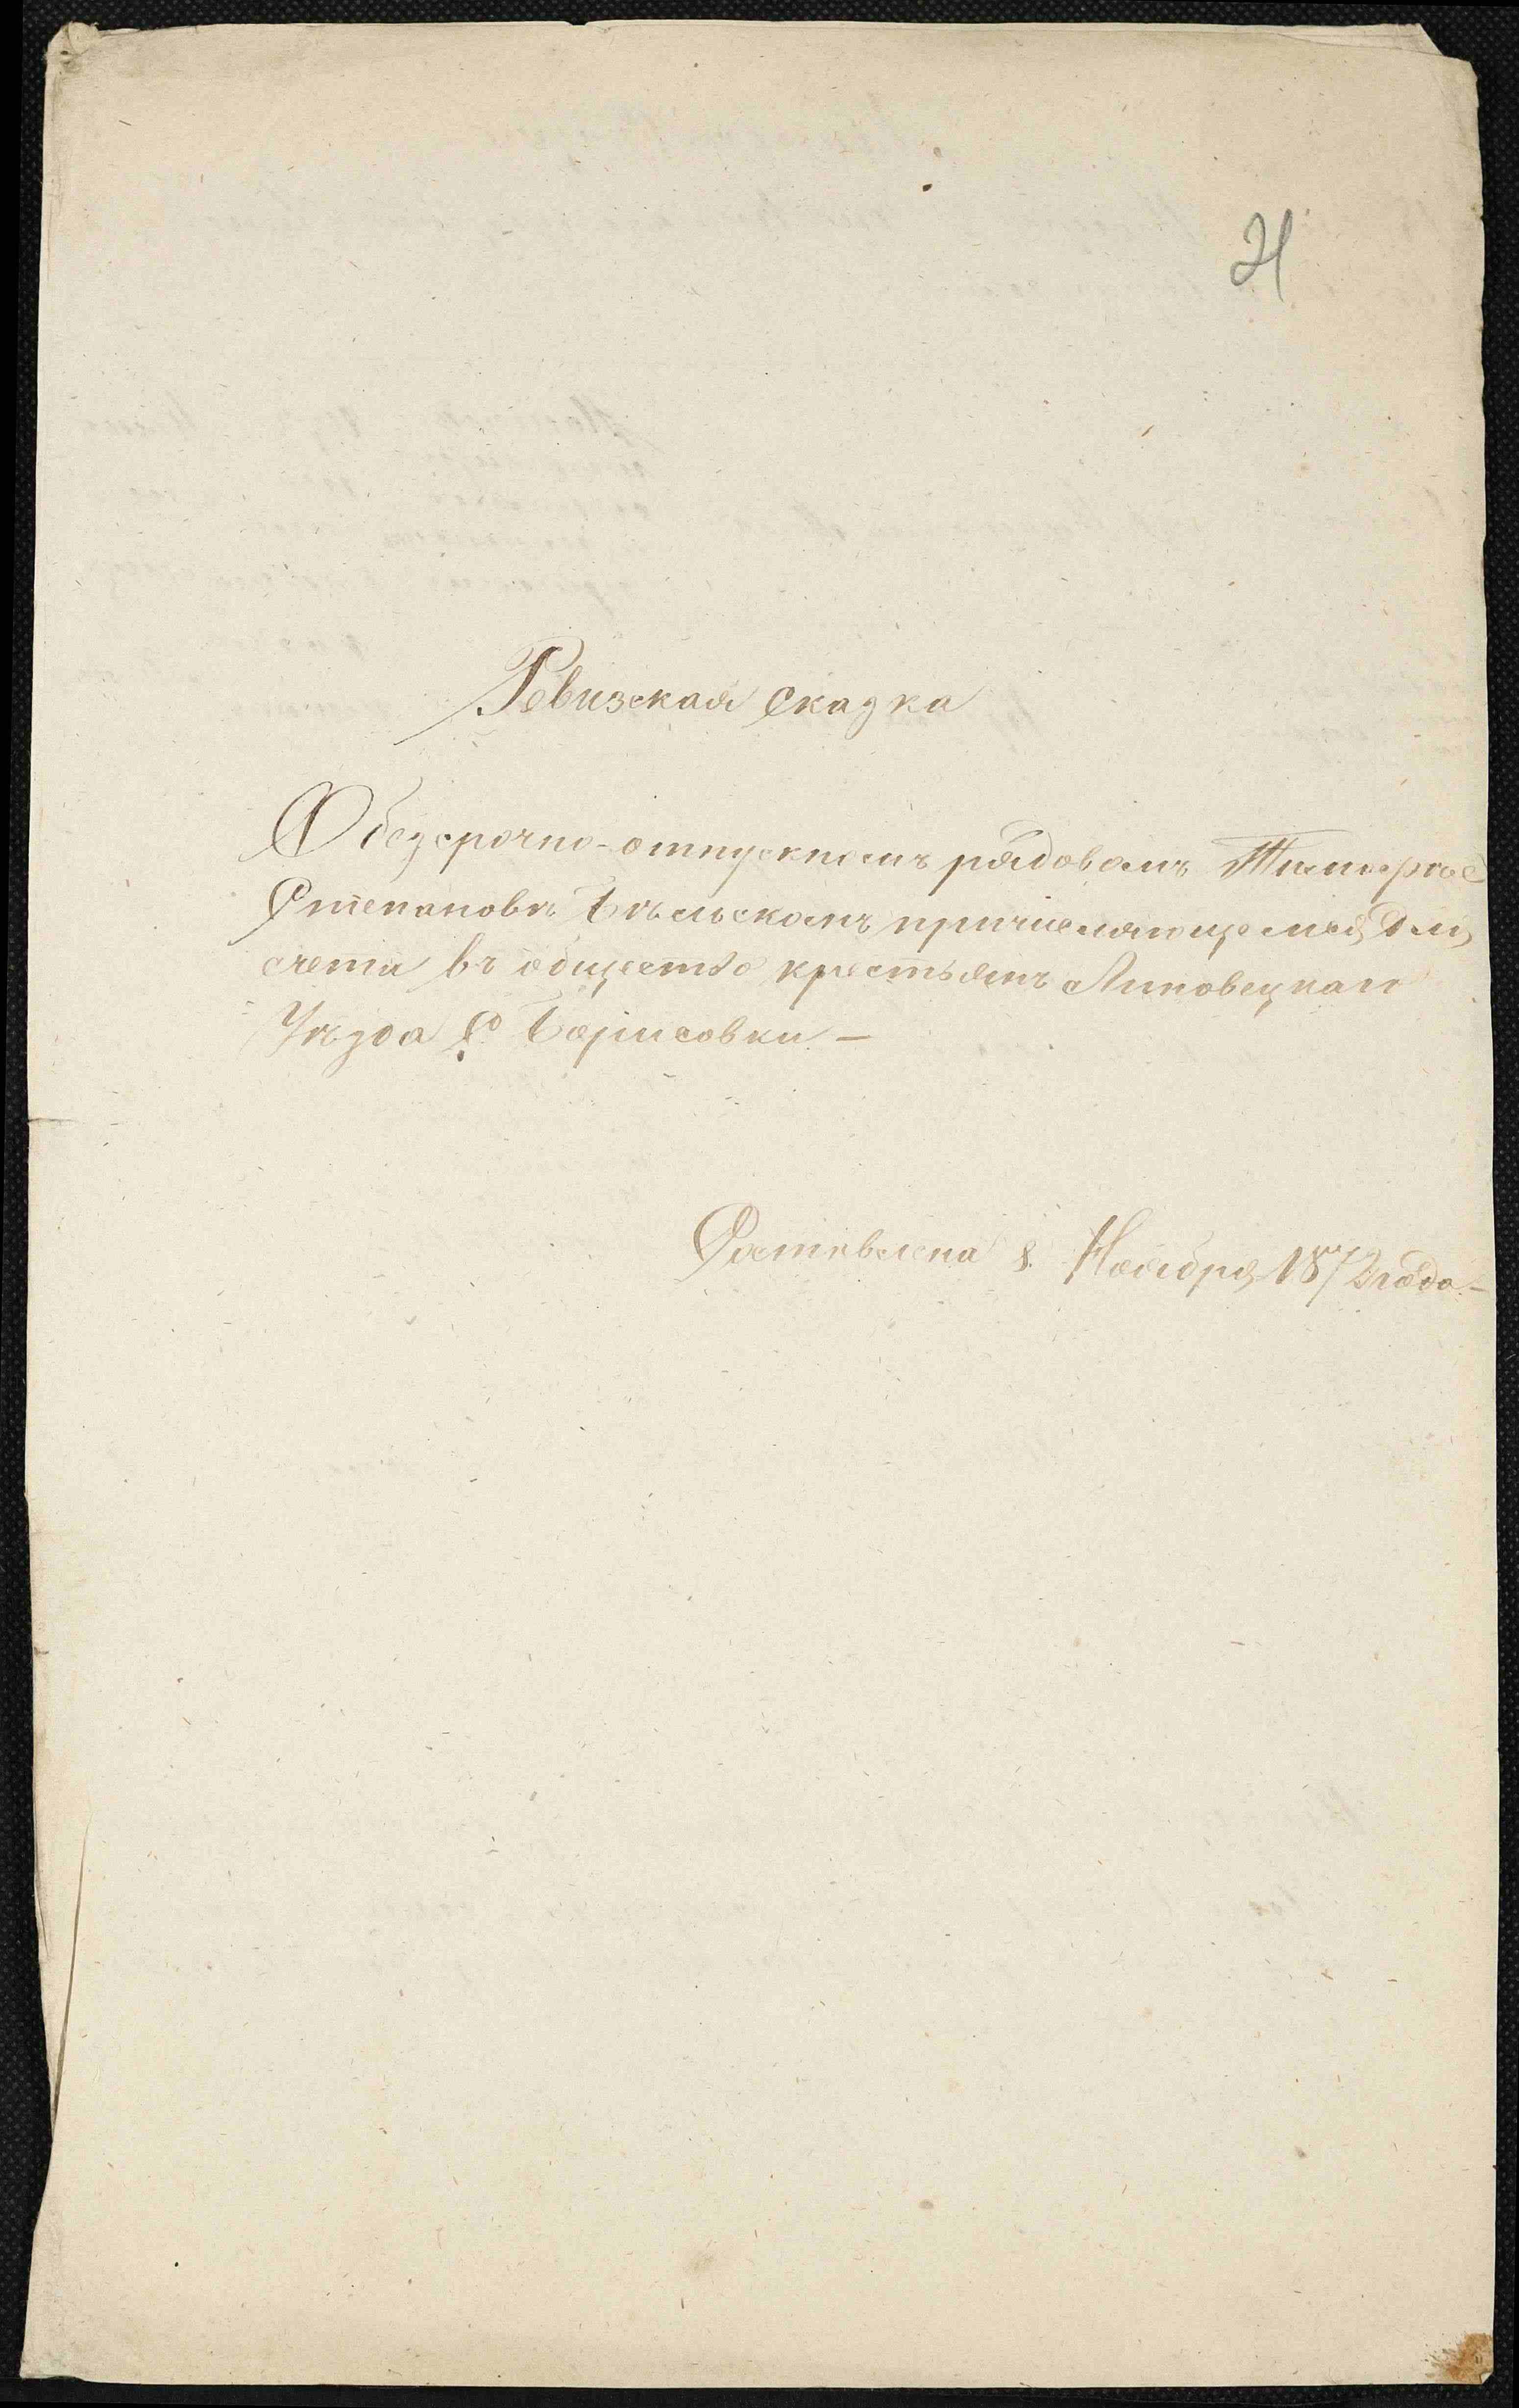 21
Ревизская Сказка
О безсрочно-отпускномъ рядовомъ Тимофеѣ
Степановѣ Бѣльскомъ причисляющемся для
счета въ общество крестьянъ Липовецкаго
Уѣзда С. Борисовки —
Составлена 8. Ноября 1872 года —